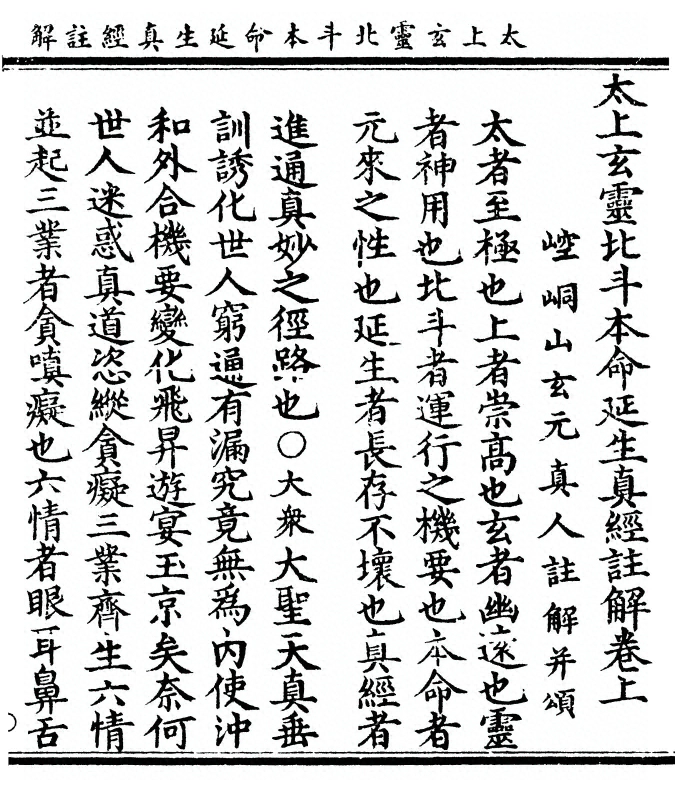 太上玄靈北斗本命延生真經註解
太上玄靈北斗本命延生真經註解卷上
崆峒山玄元真人註解并頌
太者至極也上者崇高也玄者幽遠也靈
者神用也北斗者運行之機要也本命者
元來之性也延生者長存不壞也真經者
進通真妙之徑路也○大衆大聖天真垂
訓誘化世人窮通有漏究竟無爲內使沖
和外合機要變化飛昇遊宴玉京矣奈何
世人迷惑真道恣縱貪癡三業齊生六情
並起三業者貪嗔癡也六情者眼耳鼻舌